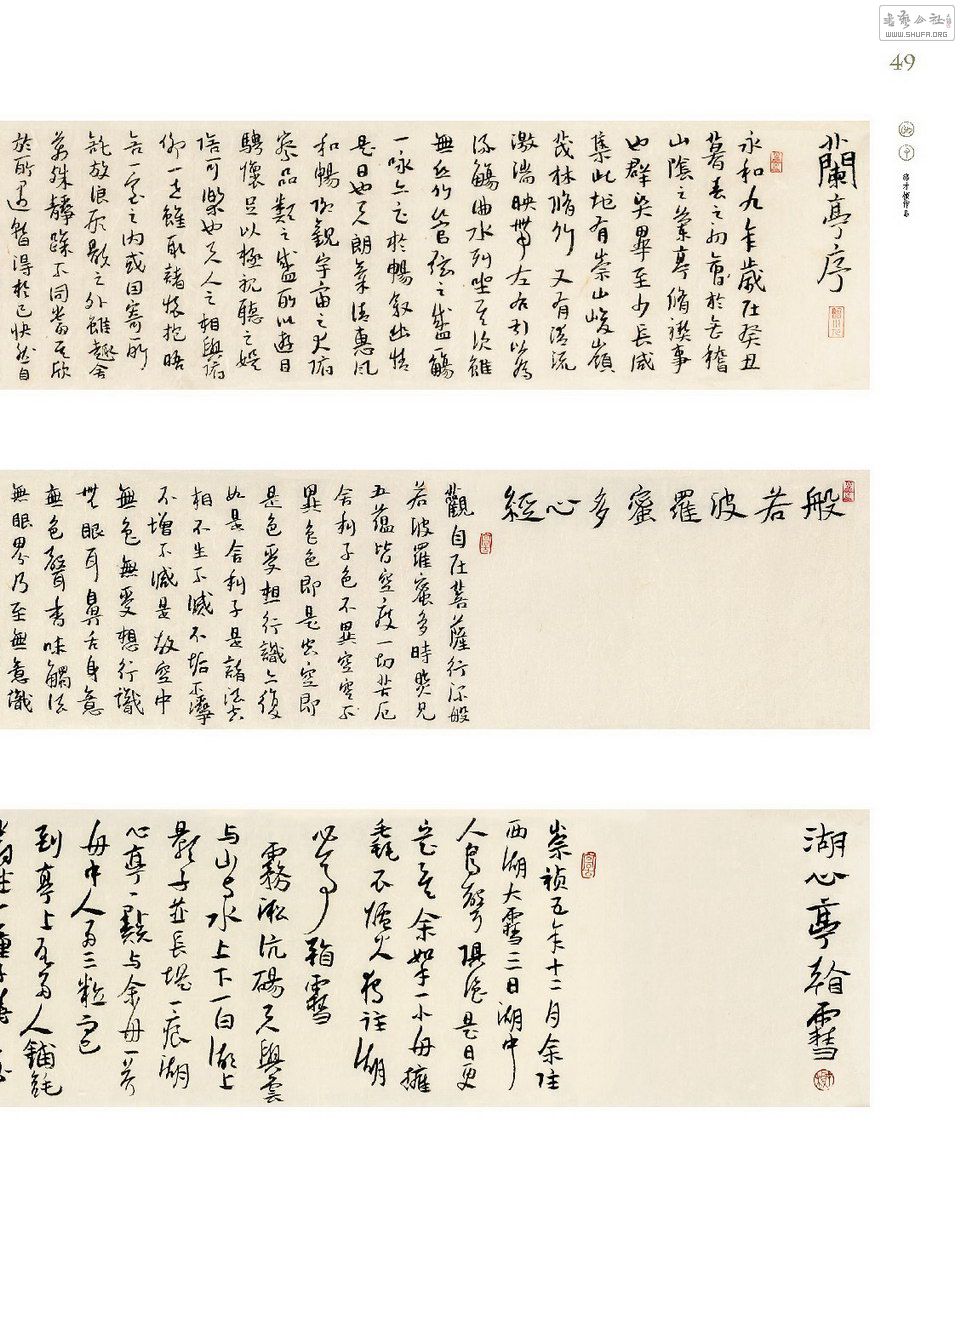 書藝公社
WWW.SHUFA.ORG
49
蘭亭序
永和九年歲在癸丑
暮春之初會於會稽
山陰之蘭亭脩禊事
也群賢畢至少長咸
集此地有崇山峻嶺
茂林脩竹又有清流
激湍映帶左右引以為
流觴曲水列坐其次雖
無絲竹管弦之盛一觴
一詠亦足以暢敘幽情
是日也天朗氣清惠風
和暢仰觀宇宙之大俯
察品類之盛所以遊目
騁懷足以極視聽之娛
信可樂也夫人之相與俯
仰一世雖取諸懷抱晤
言一室之內或因寄所
託放浪形骸之外雖趣舍
萬殊靜躁不同當其欣
於所遇暫得於己快然自
般若波羅蜜多心經
觀自在菩薩行深般
若波羅蜜多時照見
五蘊皆空度一切苦厄
舍利子色不異空空不
異色色即是空空即
是色受想行識亦復
如是舍利子是諸法空
相不生不滅不垢不淨
不增不減是故空中
無色無受想行識
無眼耳鼻舌身意
無色聲香味觸法
無眼界乃至無意識
湖心亭看雪
崇禎五年十二月余住
西湖大雪三日湖中
人鳥聲俱絕是日更
定矣余拏一小舟擁
毳衣爐火獨往湖
心亭看雪
霧淞沆碭天與雲
與山與水上下一白湖上
影子惟長堤一痕湖
心亭一點與余舟一芥
舟中人兩三粒而已
到亭上有兩人鋪氈